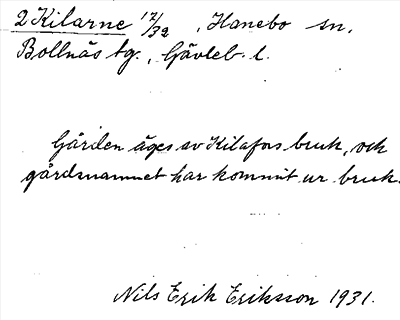 2 Kilarne 17/32, Hanebo sn.
Bollnäs tg., Gävleb. l.
Gården äges av Kilafors bruk, och
gårdsnamnet har kommit ur bruk.
Nils Erik Eriksson 1931.